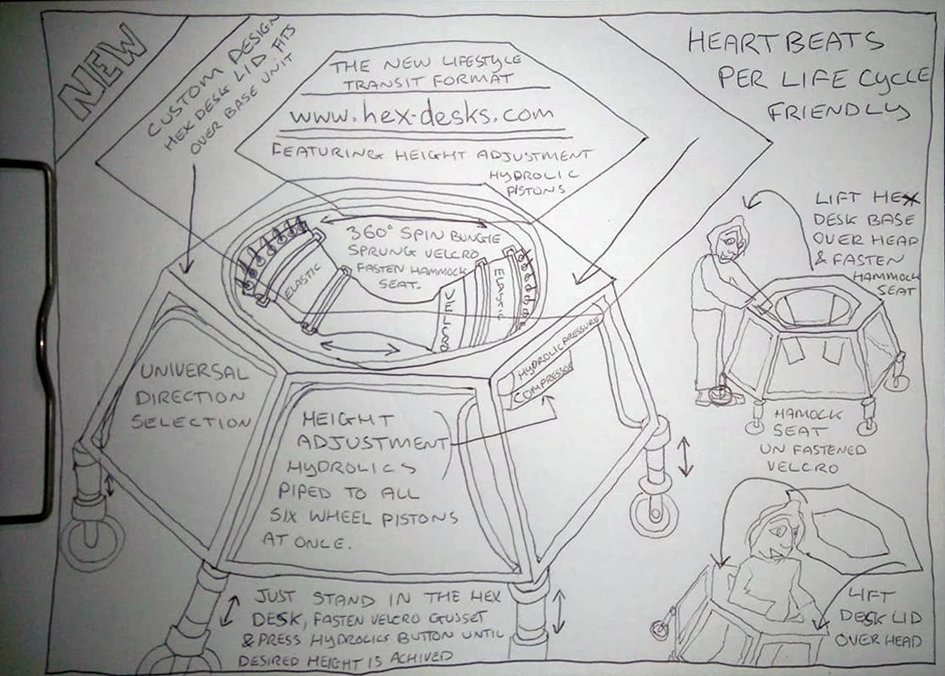 NEW
CUSTOM DESIGN
HEX DESK LID FITS
OVER BASE UNIT
THE NEW LIFESTYLE
TRANSIT FORMAT
www.hex-desks.com
FEATURING HEIGHT ADJUSTMENT
HYDROLIC
PISTONS
HEARTBEATS
PER LIFE CYCLE
FRIENDLY
360° SPIN BUNGIE
SPRUNG VELCRO
FASTEN HAMMOCK
SEAT.
ELASTIC
VELCRO
ELASTIC
LIFT HEX
DESK BASE
OVER HEAD
& FASTEN
HAMMOCK
SEAT
HYDROLIC PRESSURE
COMPRESSOR
UNIVERSAL
DIRECTION
SELECTION
HEIGHT
ADJUSTMENT
HYDROLICS
PIPED TO ALL
SIX WHEEL PISTONS
AT ONCE.
HAMOCK
SEAT
UN FASTENED
VELCRO
JUST STAND IN THE HEX
DESK, FASTEN VELCRO GUSSET
& PRESS HYDROLICS BUTTON UNTIL
DESIRED HEIGHT IS ACHIVED
LIFT
DESK LID
OVER HEAD